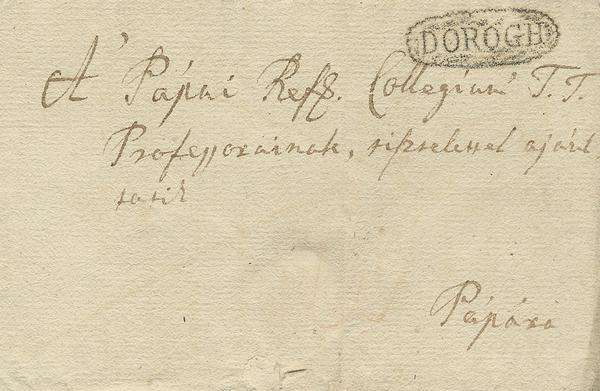 DOROGH
A' Pápai Reff. Collegium' T. T.
Professorainak, tisztelettel ajánl
tatik
Pápára